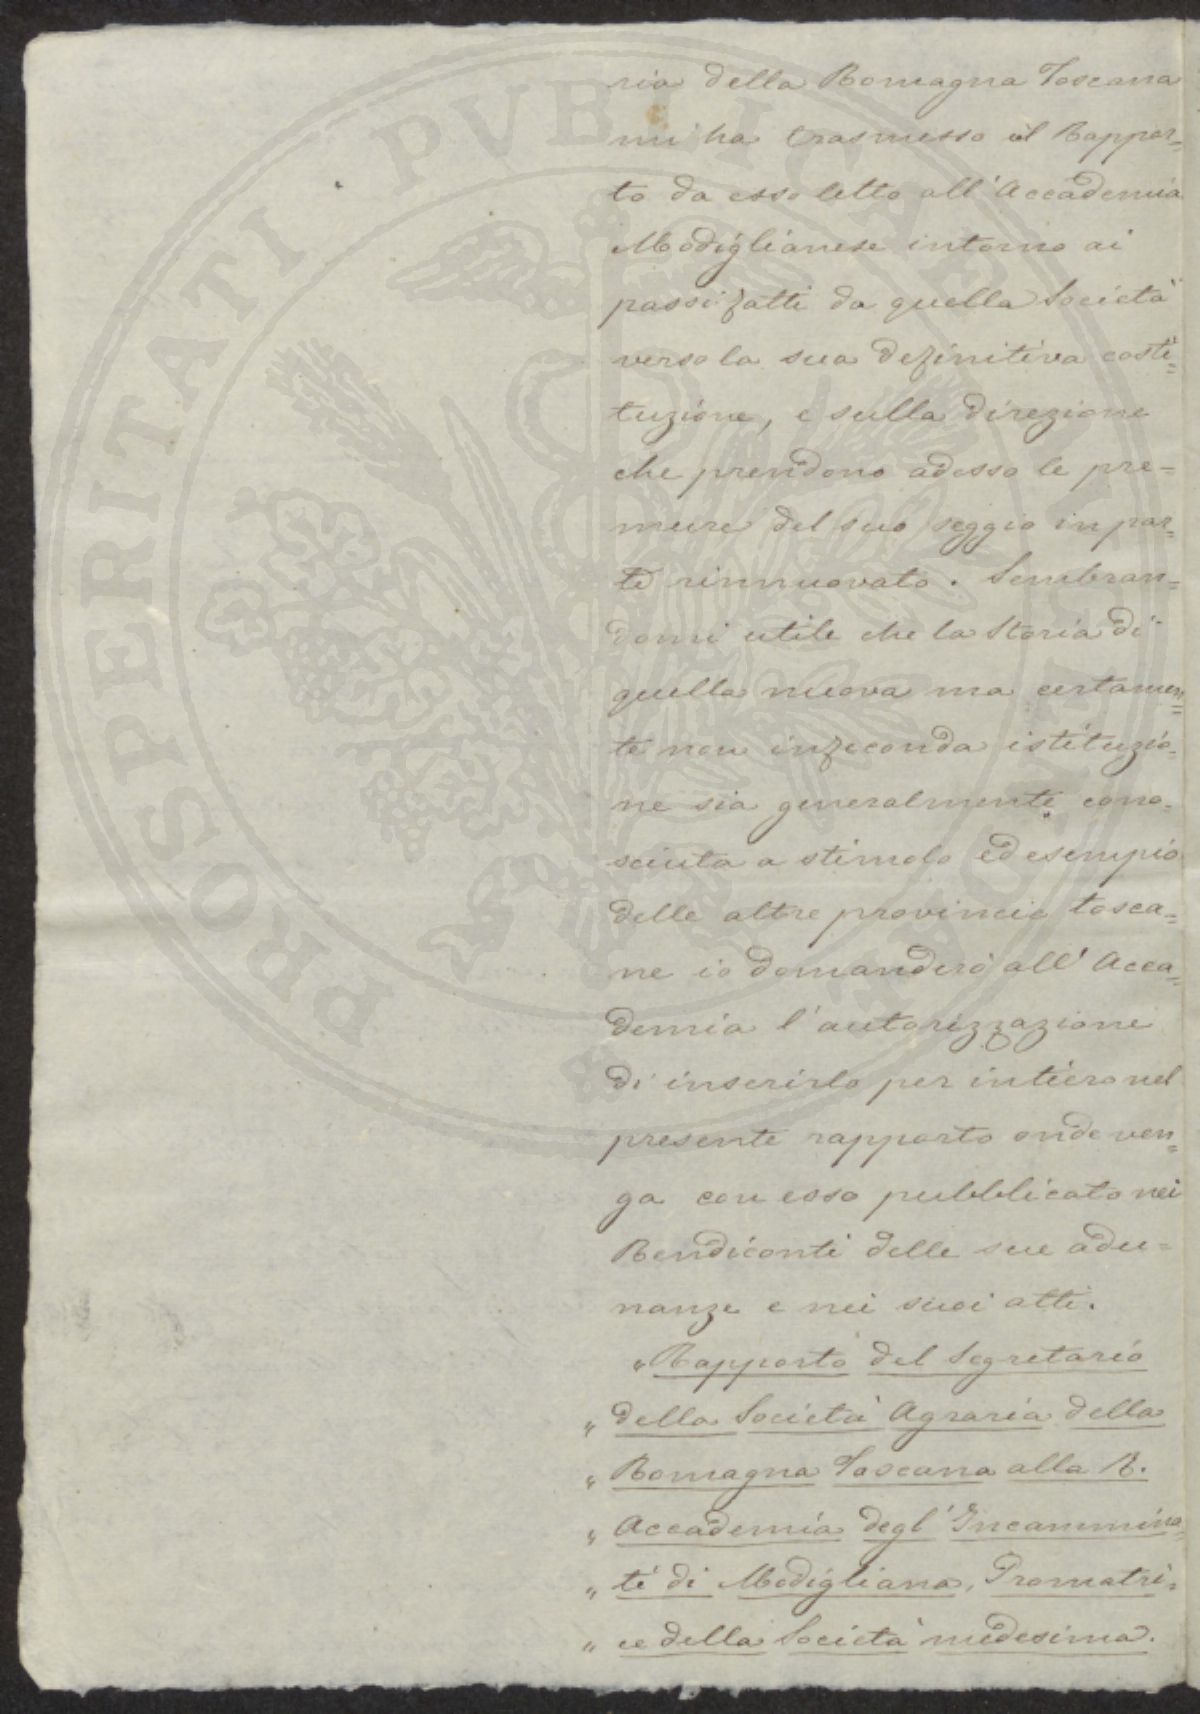 ria della Romagna Toscana
mi ha trasmesso il Rappor=
to da esso letto all'Accademia
Modiglianese intorno ai
passi fatti da quella Società
verso la sua definitiva costi=
tuzione, e sulla direzione
che prendono adesso le pre=
mure del suo seggio in par=
te rinnuovato. Sembran=
domi utile che la Storia di
quella nuova ma certamen=
te non infeconda istituzio=
ne sia generalmente cono=
sciuta a stimolo ed esempio
delle altre provincie tosca=
ne io domanderò all'Acca=
demia l'autorizzazione
di inserirlo per intiero nel
presente rapporto onde ven=
ga con esso pubblicato nei
Rendiconti delle sue adu=
nanze e nei suoi atti.
"Rapporto del Segretario
" della Società Agraria della
" Romagna Toscana alla R.
" Accademia degl'Incammina=
" ti di Modigliana, Promotri=
" ce della Società medesima.
PROSPERITATI PVBLICAE AVGENDAE